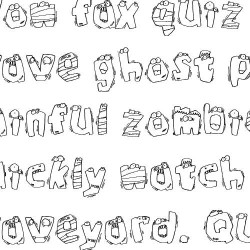 om fox quiz
ove ghost p
inful zombie
ickly watch
aveyard. Qu